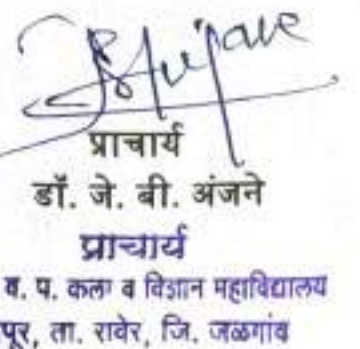 प्राचार्य
डॉ. जे. बी. अंजने
प्राचार्य
व. प. कला व विज्ञान महाविद्यालय
पूर, ता. रावेर, जि. जळगांव